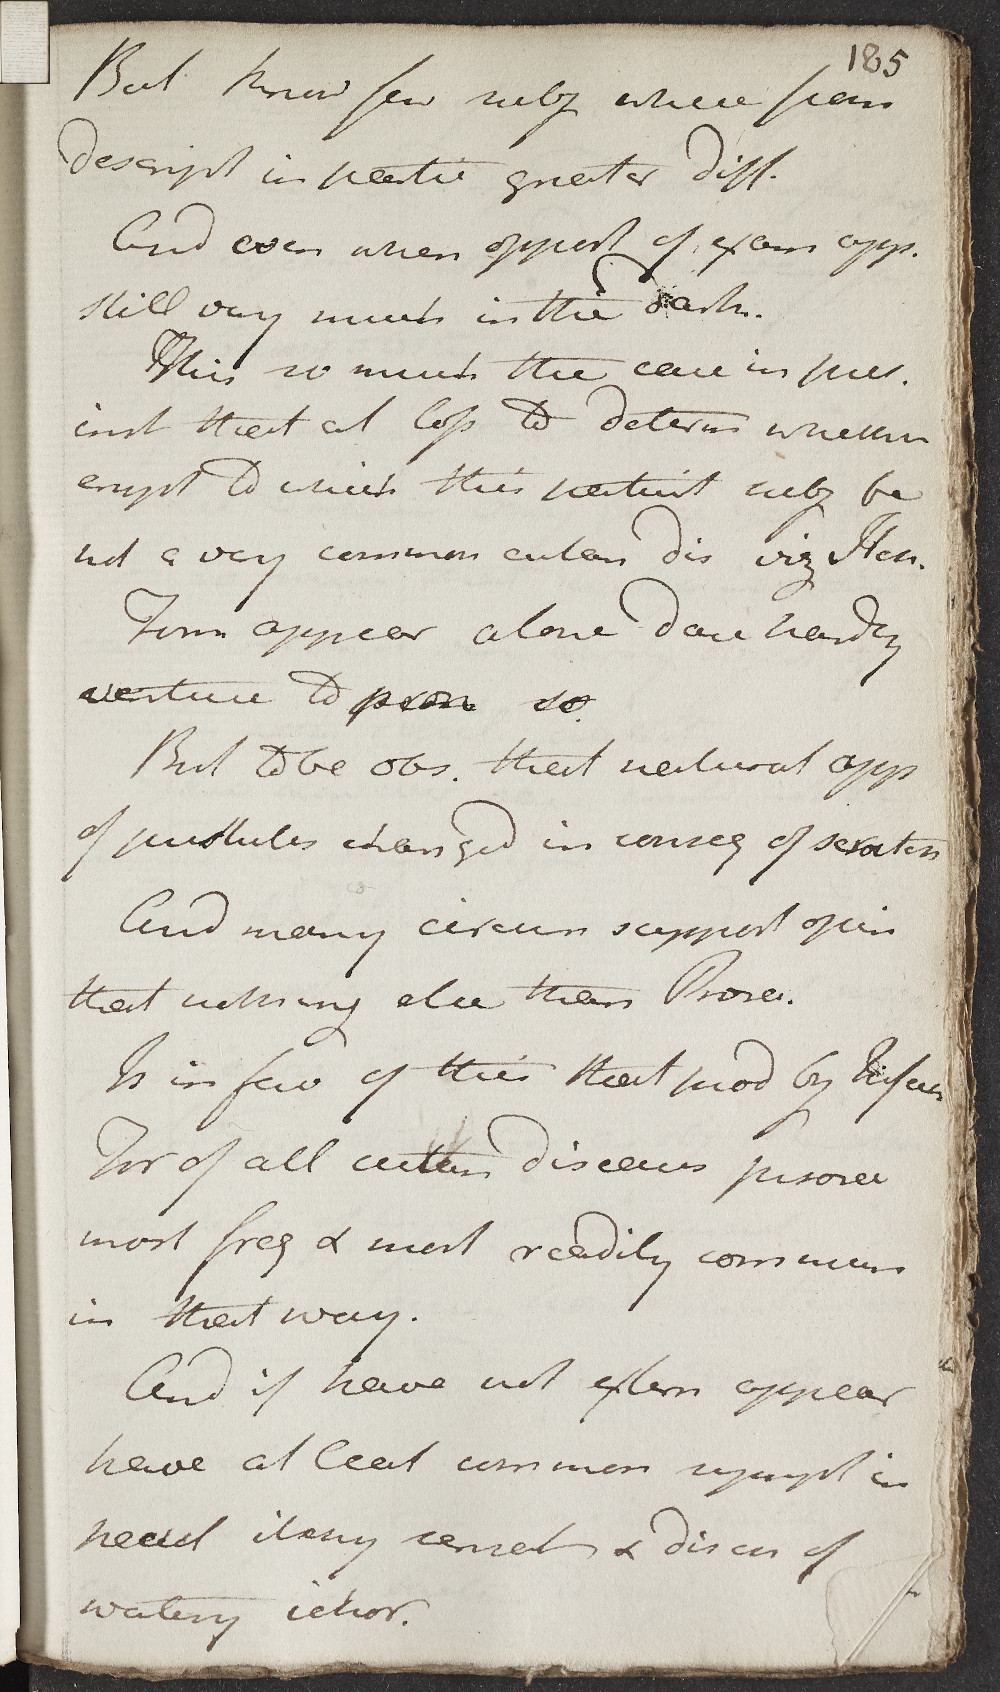 185
But know few subj where from
descript in partic greater diff.
And even when opport of exam app.
still very much in the dark.
This so much the case in pres.
inst that at loss to determ whether
erupt to which this patient subj be
not a very common cutan dis viz Itch.
From appear alone dare hardly
venture to pron so.
But to be obs. that natural app
of pustules changed in conseq of scratch
And many circum support opin
that nothing else than Psora.
Is in fav of this that prod by
For of all cutan diseases psora
most freq & most readily commun
in that way.
And if have not extern appear
have at least common sympt in
itchy sensat & disch of
watery ichor.